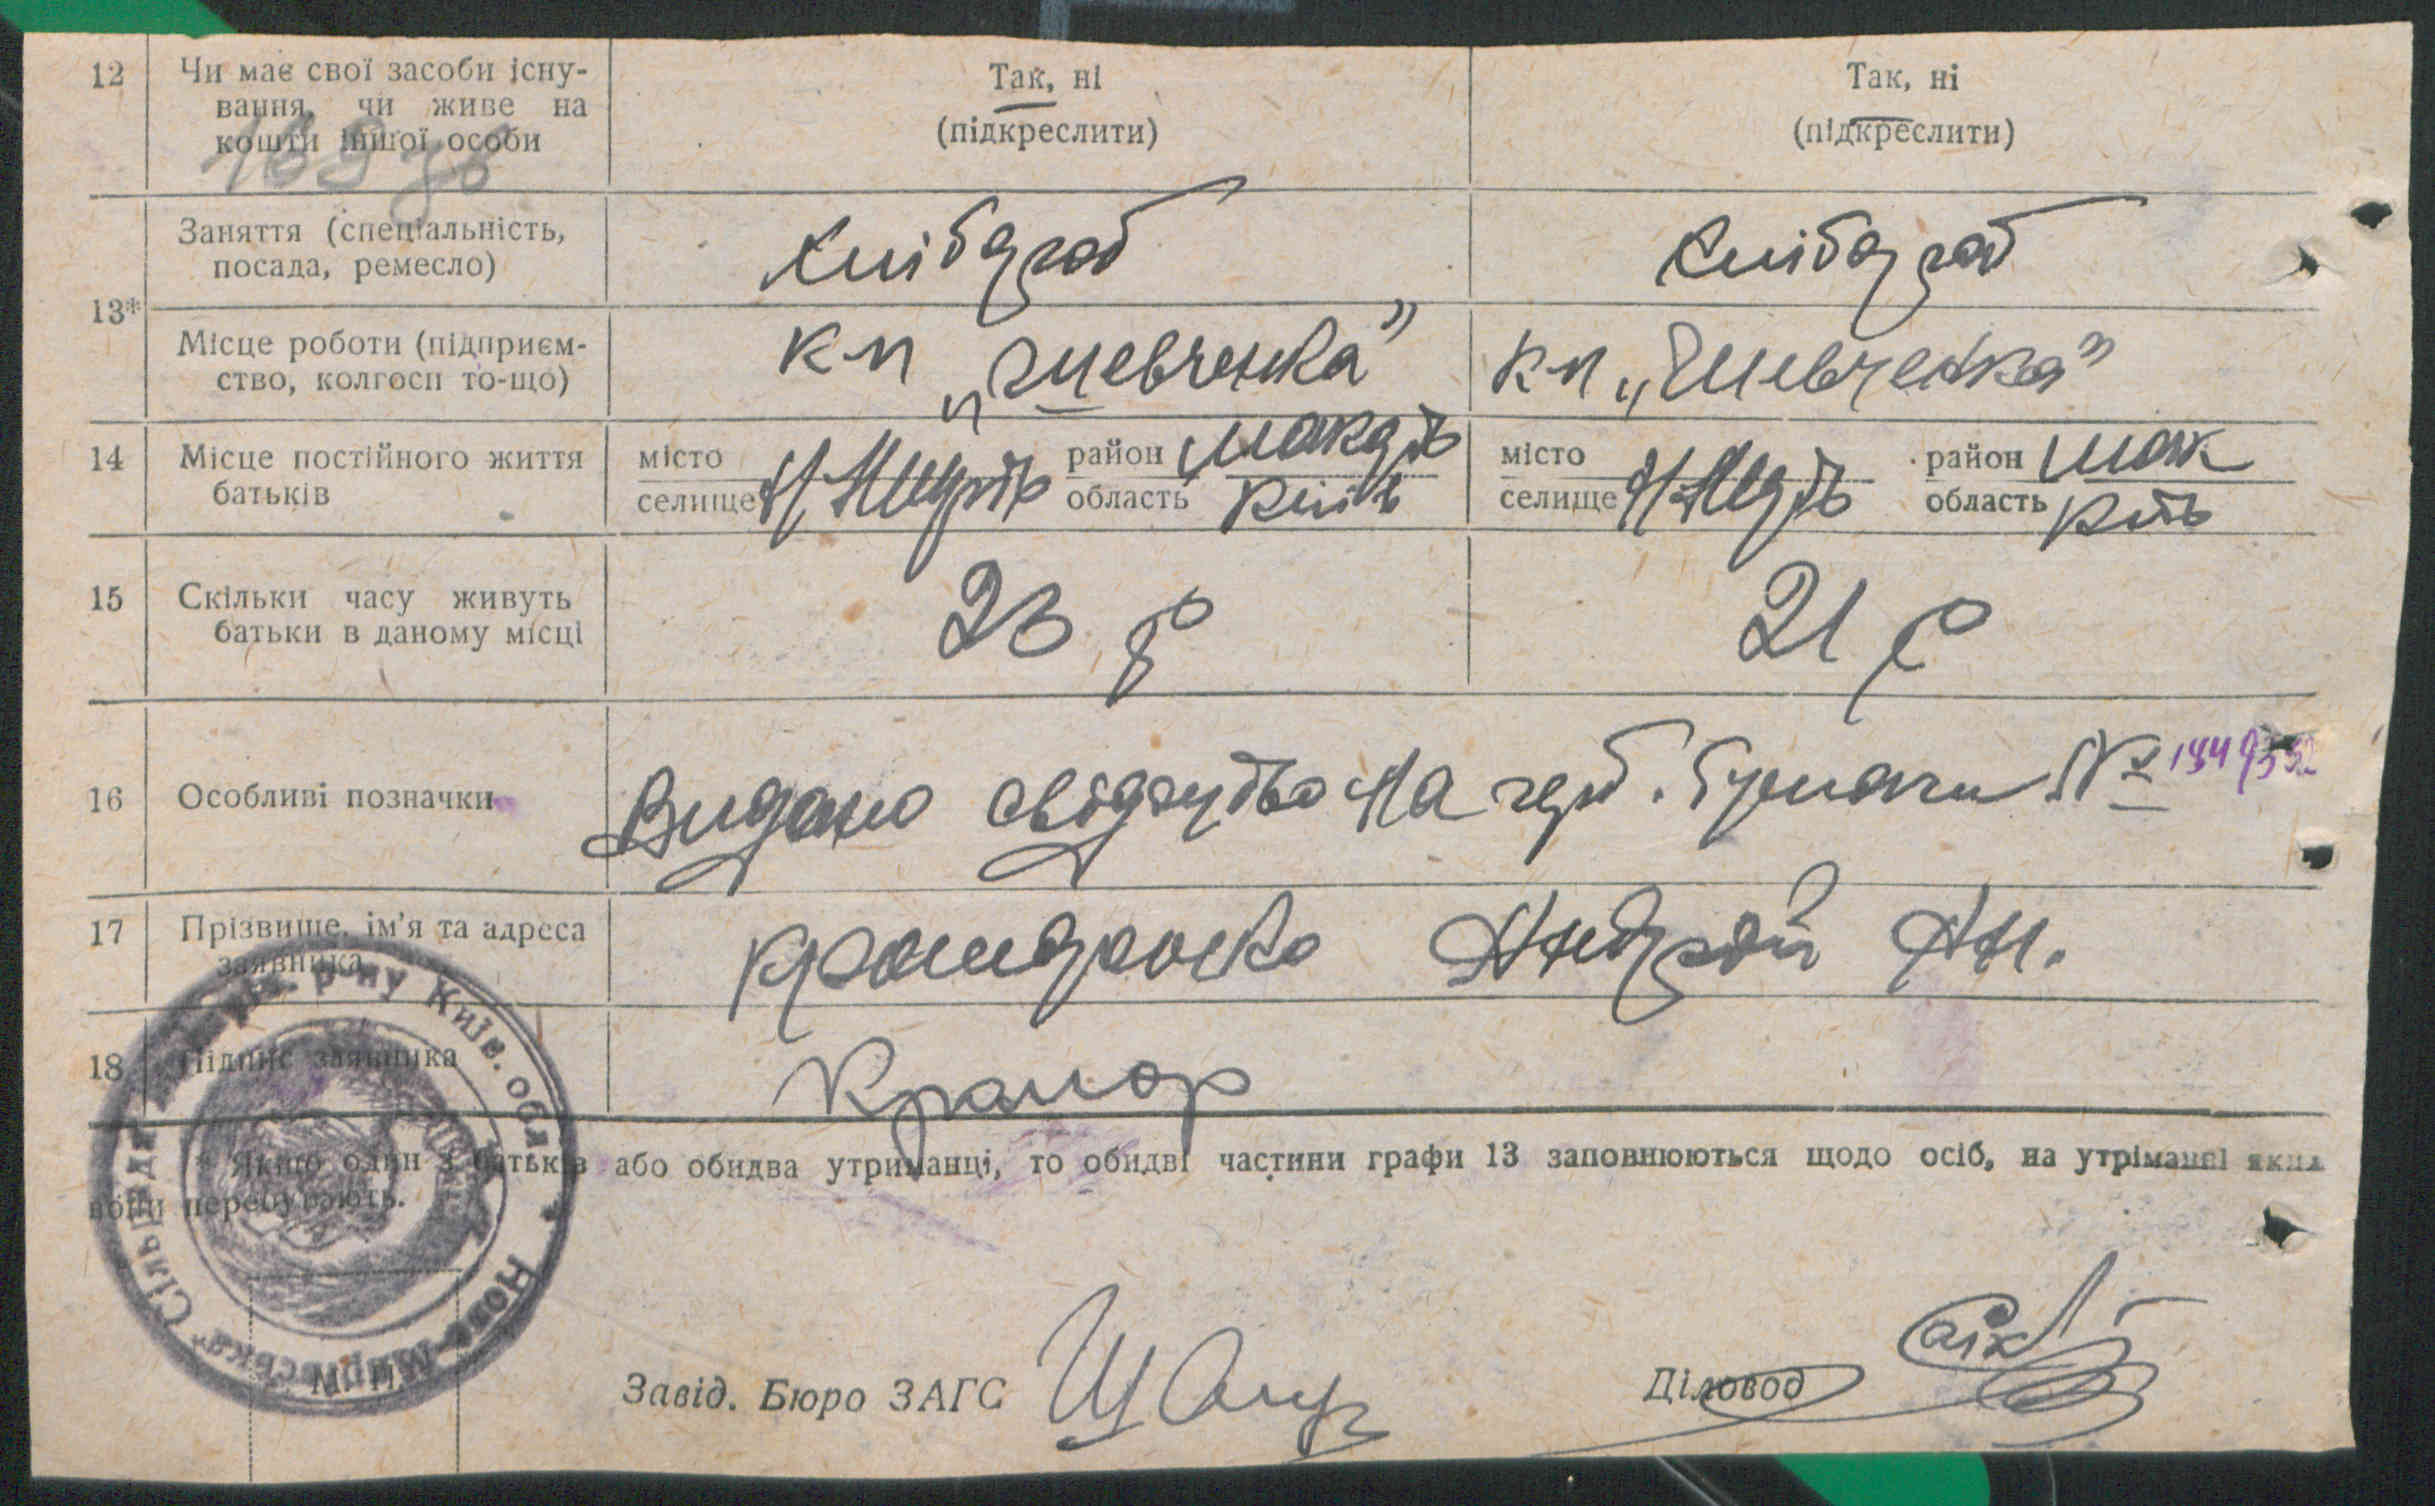 12 Чи має свої засоби існу-
вання, чи живе на
кошти іншої особи
Так, ні
(підкреслити)
Так, ні
(підкреслити)
13*
Заняття (спеціальність,
посада, ремесло)
Хлібороб
Хлібороб
Місце роботи (підприєм-
ство, колгосп то-що)
к-п „Шевченка”
к-п „Шевченка”
14 Місце постійного життя
батьків
місто
селище
район
область
місто
селище
район Мак
область
15 Скільки часу живуть
батьки в даному місці
23 р
21 р
16 Особливі позначки
Видано свідоцтво на герб. бумаги №
17 Прізвище, ім'я та адреса
заявника
Андрій Ан.
18 Підпис заявника
Крамар
* Якщо один з батьків або обидва утриманці, то обидві частини графи 13 заповнюються щодо осіб, на утріманні яких
вони перебувають.
р-ну Київ. обл. * Ново-Мирг ська Сільрада
Завід. Бюро ЗАГС
Діловод